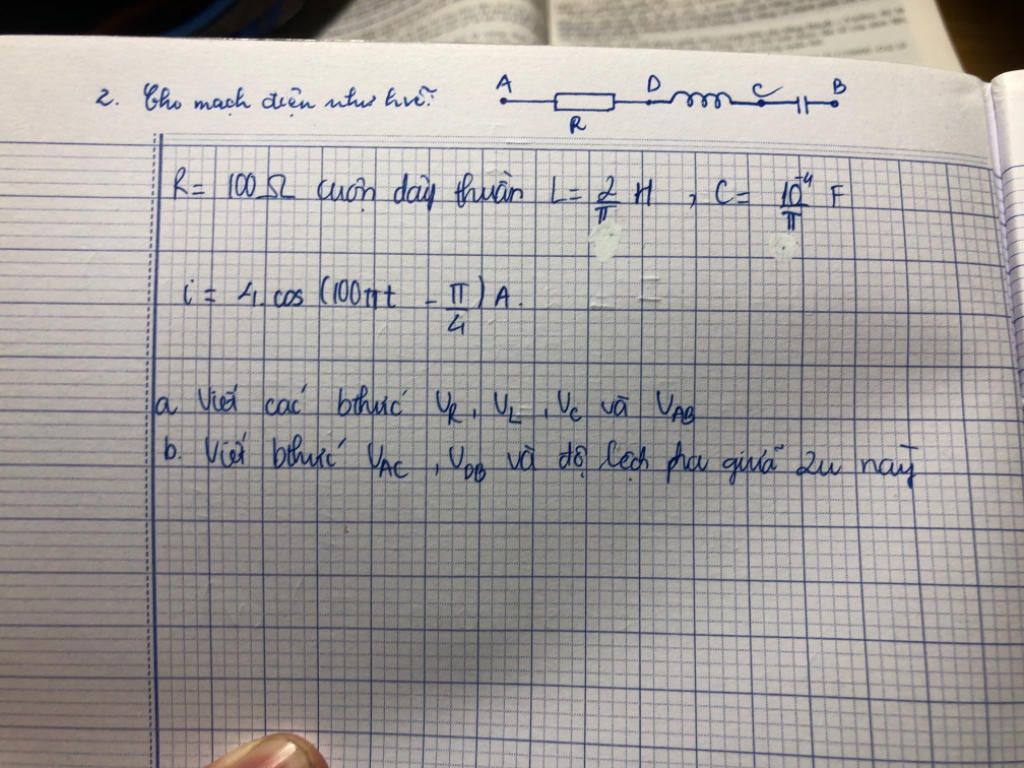 2. Cho mạch điện như hvẽ: A D C B
R
R = 100Ω cuộn dây thuần L = 2/π H , C = 10⁻⁴/π F
i = 4 cos (100πt - π/4) A.
a Viết các bthức U_R, U_L, U_C và U_AB
b. Viết bthức U_AC, U_DB và độ lệch pha giữa 2u này